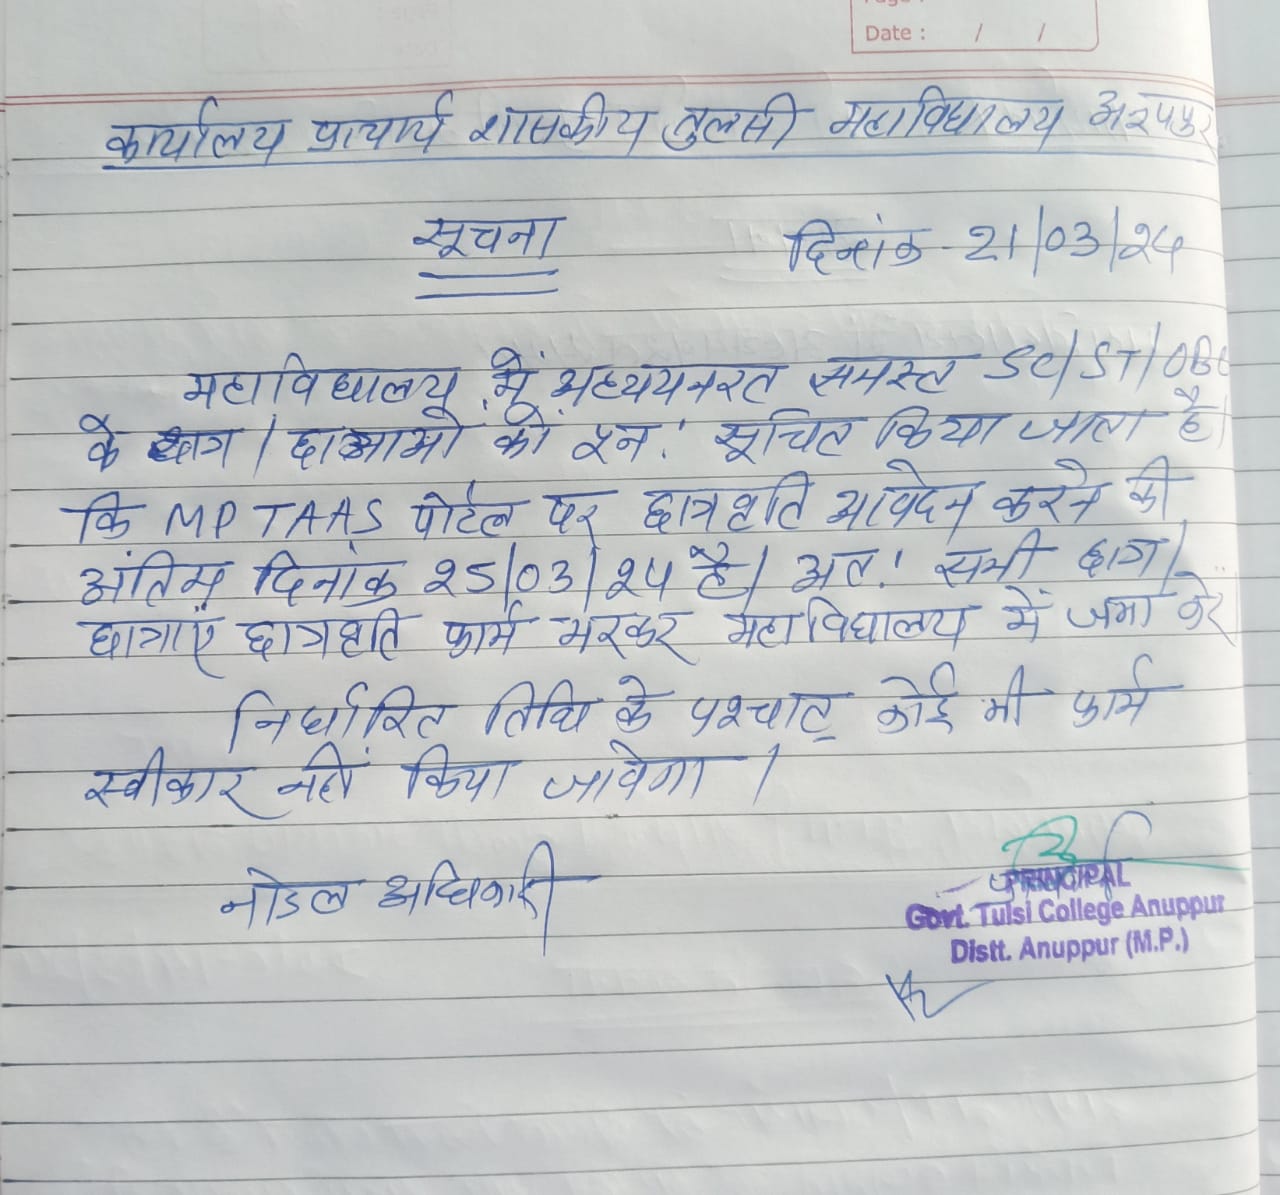 Date : / /
कार्यालय प्राचार्य शासकीय तुलसी महाविद्यालय अनूपपुर
सूचना दिनांक - 21/03/24
महाविद्यालय में अध्ययनरत समस्त SC/ST/OBC
के छात्र / छात्राओं को पुन: सूचित किया जाता है।
कि MPTAAS पोर्टल पर छात्रवृति आवेदन करने की
अंतिम दिनांक 25/03/24 है। अत: सभी छात्र/
छात्राएं छात्रवृति फार्म भरकर महाविद्यालय में जमा करें
निर्धारित तिथि के पश्चात् कोई भी फार्म
स्वीकार नहीं किया जावेगा।
नोडल अधिकारी
PRINCIPAL
Govt. Tulsi College Anuppur
Distt. Anuppur (M.P.)